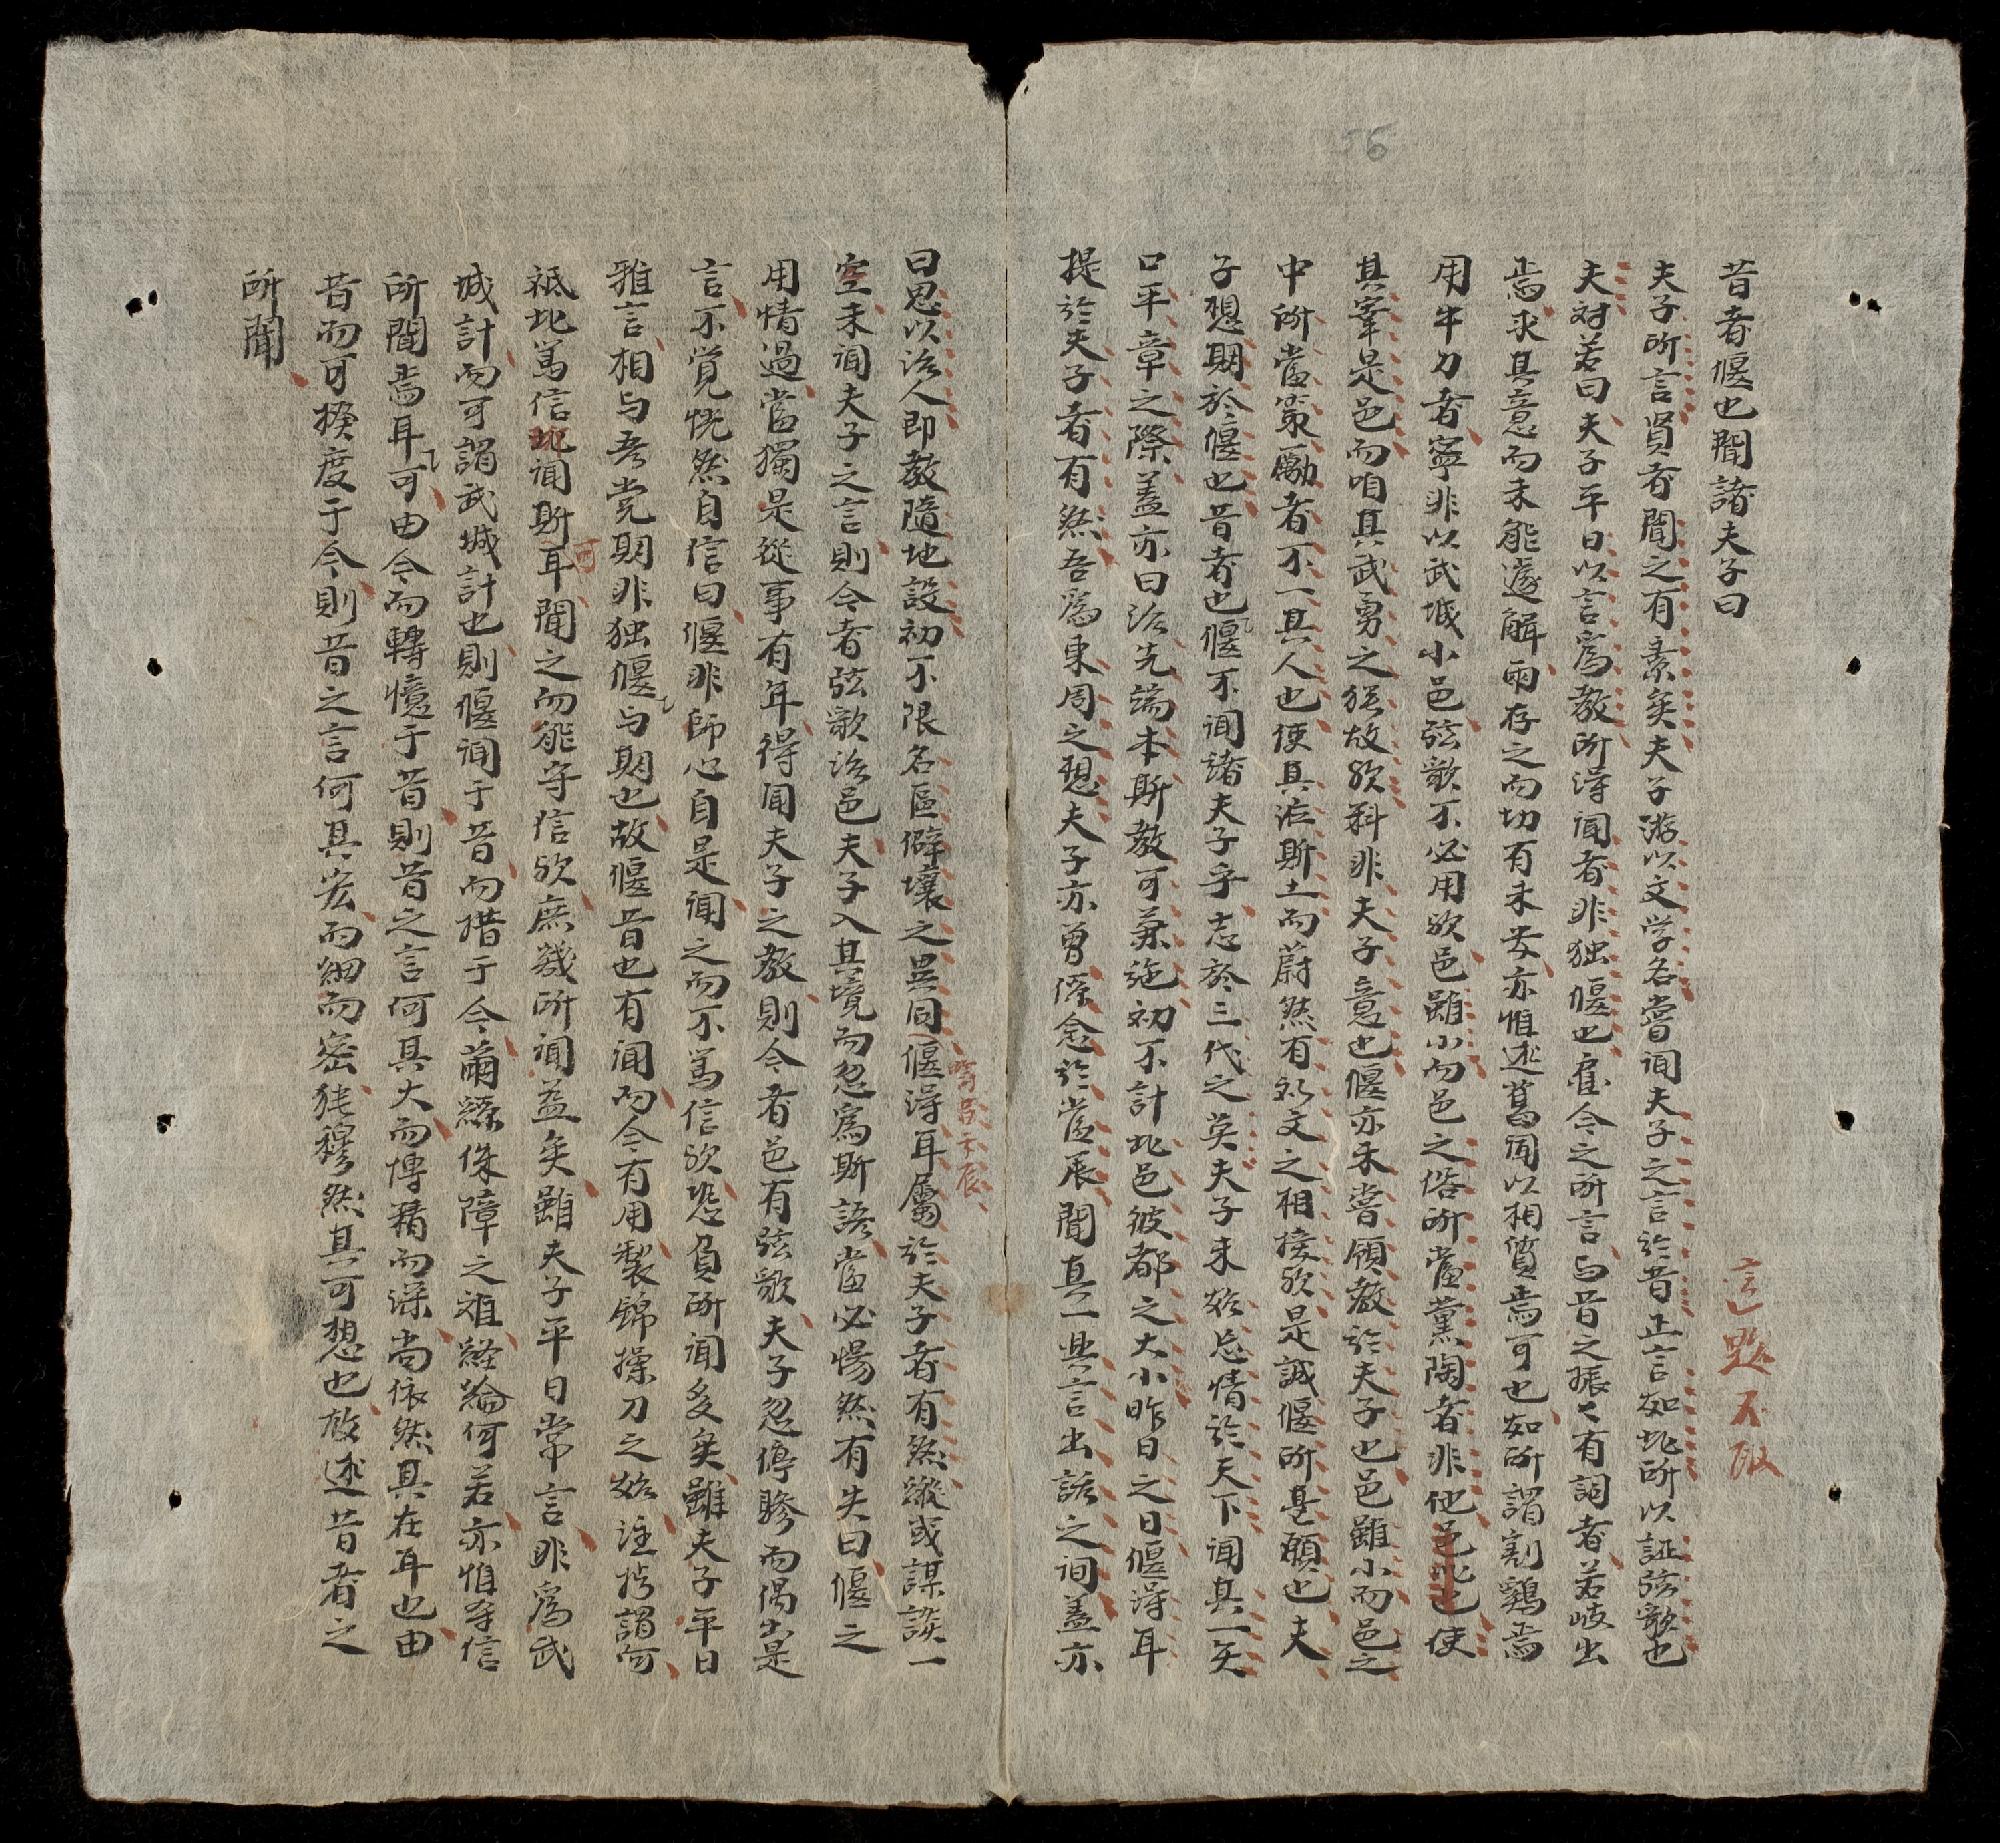 56
昔者偃也聞諸夫子曰
夫子所言賢者聞之有素矣夫子游以文学名嘗闻夫子之言於昔正言如此所以証弦歌也
夫对若曰夫子平日以言爲教所淂闻者非独偃也隺今之所言与昔之振〻有詞者若岐出
焉求其意而未能遂解兩存之而切有未安亦惟述舊闻以相質焉可也如所謂割鷄焉
用牛刀者寧非以武城小邑弦歌不必用欤邑雖小而邑之俗所當薰陶者非他邑比也使
其宰是邑而咱其武勇之경故欤料非夫子意也偃亦未嘗領教於夫子也邑雖小而邑之
中所當策勵者不一其人也使其涖斯土而蔚然有紋文之相接欤是誠偃所甚願也夫
子想期於偃也昔者也偃不闻諸夫子乎志於三代之英夫子未始忘情於天下闻其一天
口平章之際盖亦曰治先端本斯教可兼施初不計此邑彼都之大小昨日之日偃淂耳
提於夫子者有然吾爲東周之想夫子亦曾係念於當辰聞真一與言出諺之间盖亦
曰思以治人即教隨地設初不限名區僻壤之異同偃淂耳屬於夫子者有然縱或謀談一
空未闻夫子之言則今者弦歌治邑夫子入其境而忽爲斯諺當必惕然有失曰偃之
用情過當獨是從事有年得闻夫子之教則今者邑有弦歌夫子忽停驂而偶出是
言不覚恍然自信曰偃非師心自是闻之而不篤信欤恐負所闻多矣雖夫子平日
雅言相与吾党期非独偃与期也故偃昔也有闻而今有用製錦操刀之始注拧謂何
祗此篤信此闻斯耳聞之而能守信欤庶幾所闻益矣雖夫子平日常言非爲武
可
城計而可謂武城計也則偃闻于昔而措于今繭絲保障之雄経綸何若亦惟守信
所聞焉耳可由今而轉憶于昔則昔之言何其大而博精而深尚依然其在耳也由
昔而可揆度于今則昔之言何其宏而細而密犹穆然其可想也敢述昔者之
所聞